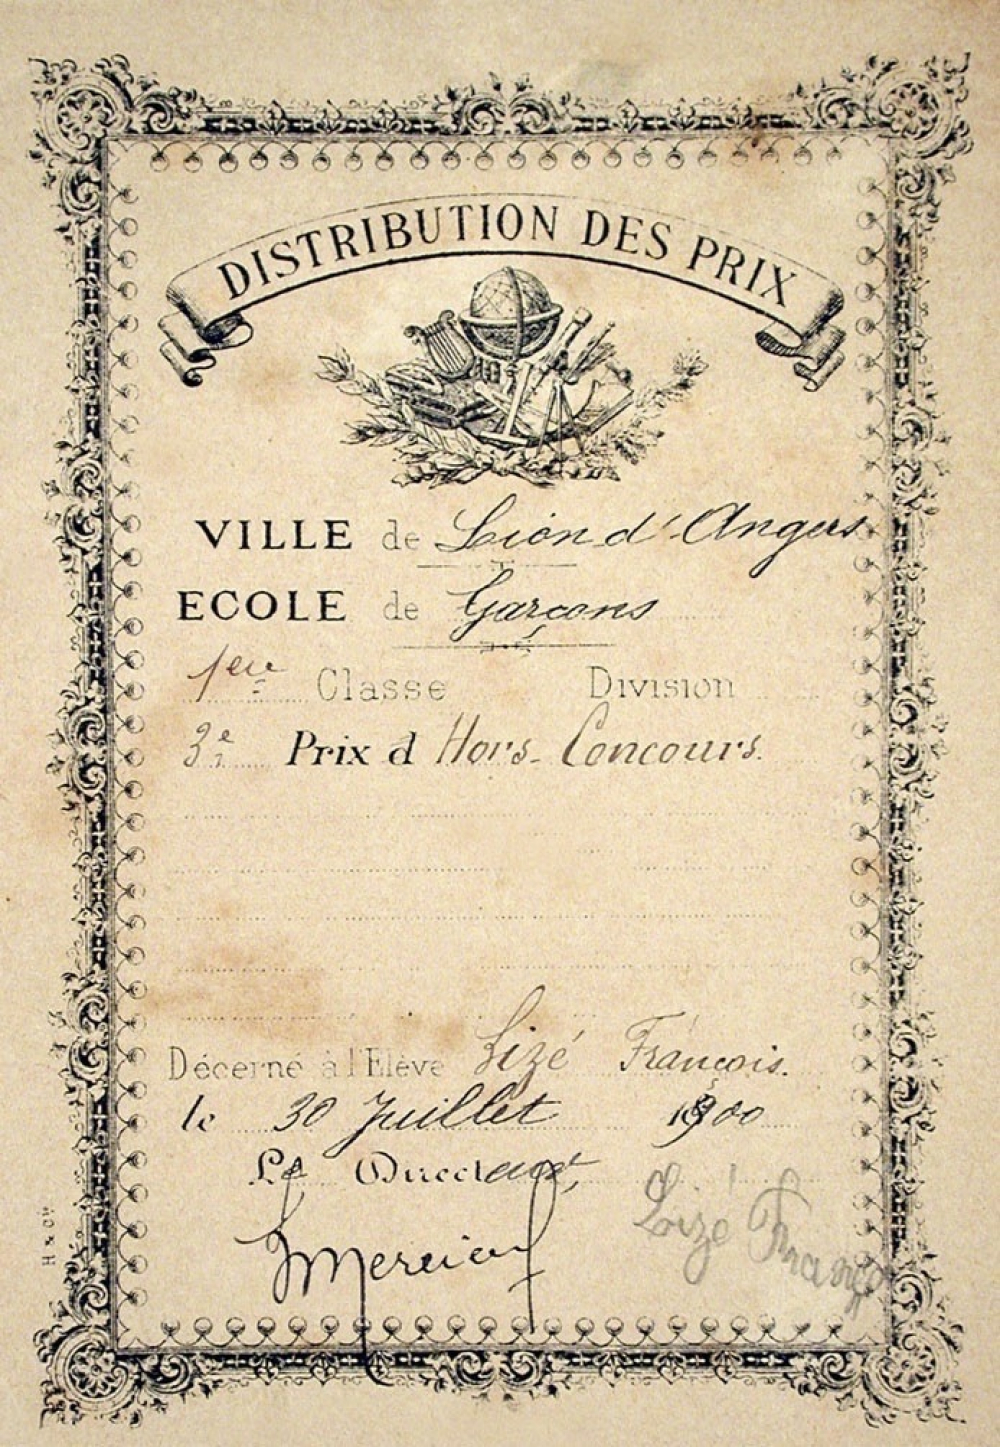 DISTRIBUTION DES PRIX
VILLE de Lion d'Angers
ECOLE de Garçons
1ere Classe Division
3e Prix d Hors-Concours.
Décerné à l'Elève Lizé François.
le 30 Juillet 1900
Le Directeur,
Lizé Franço
H & Cie